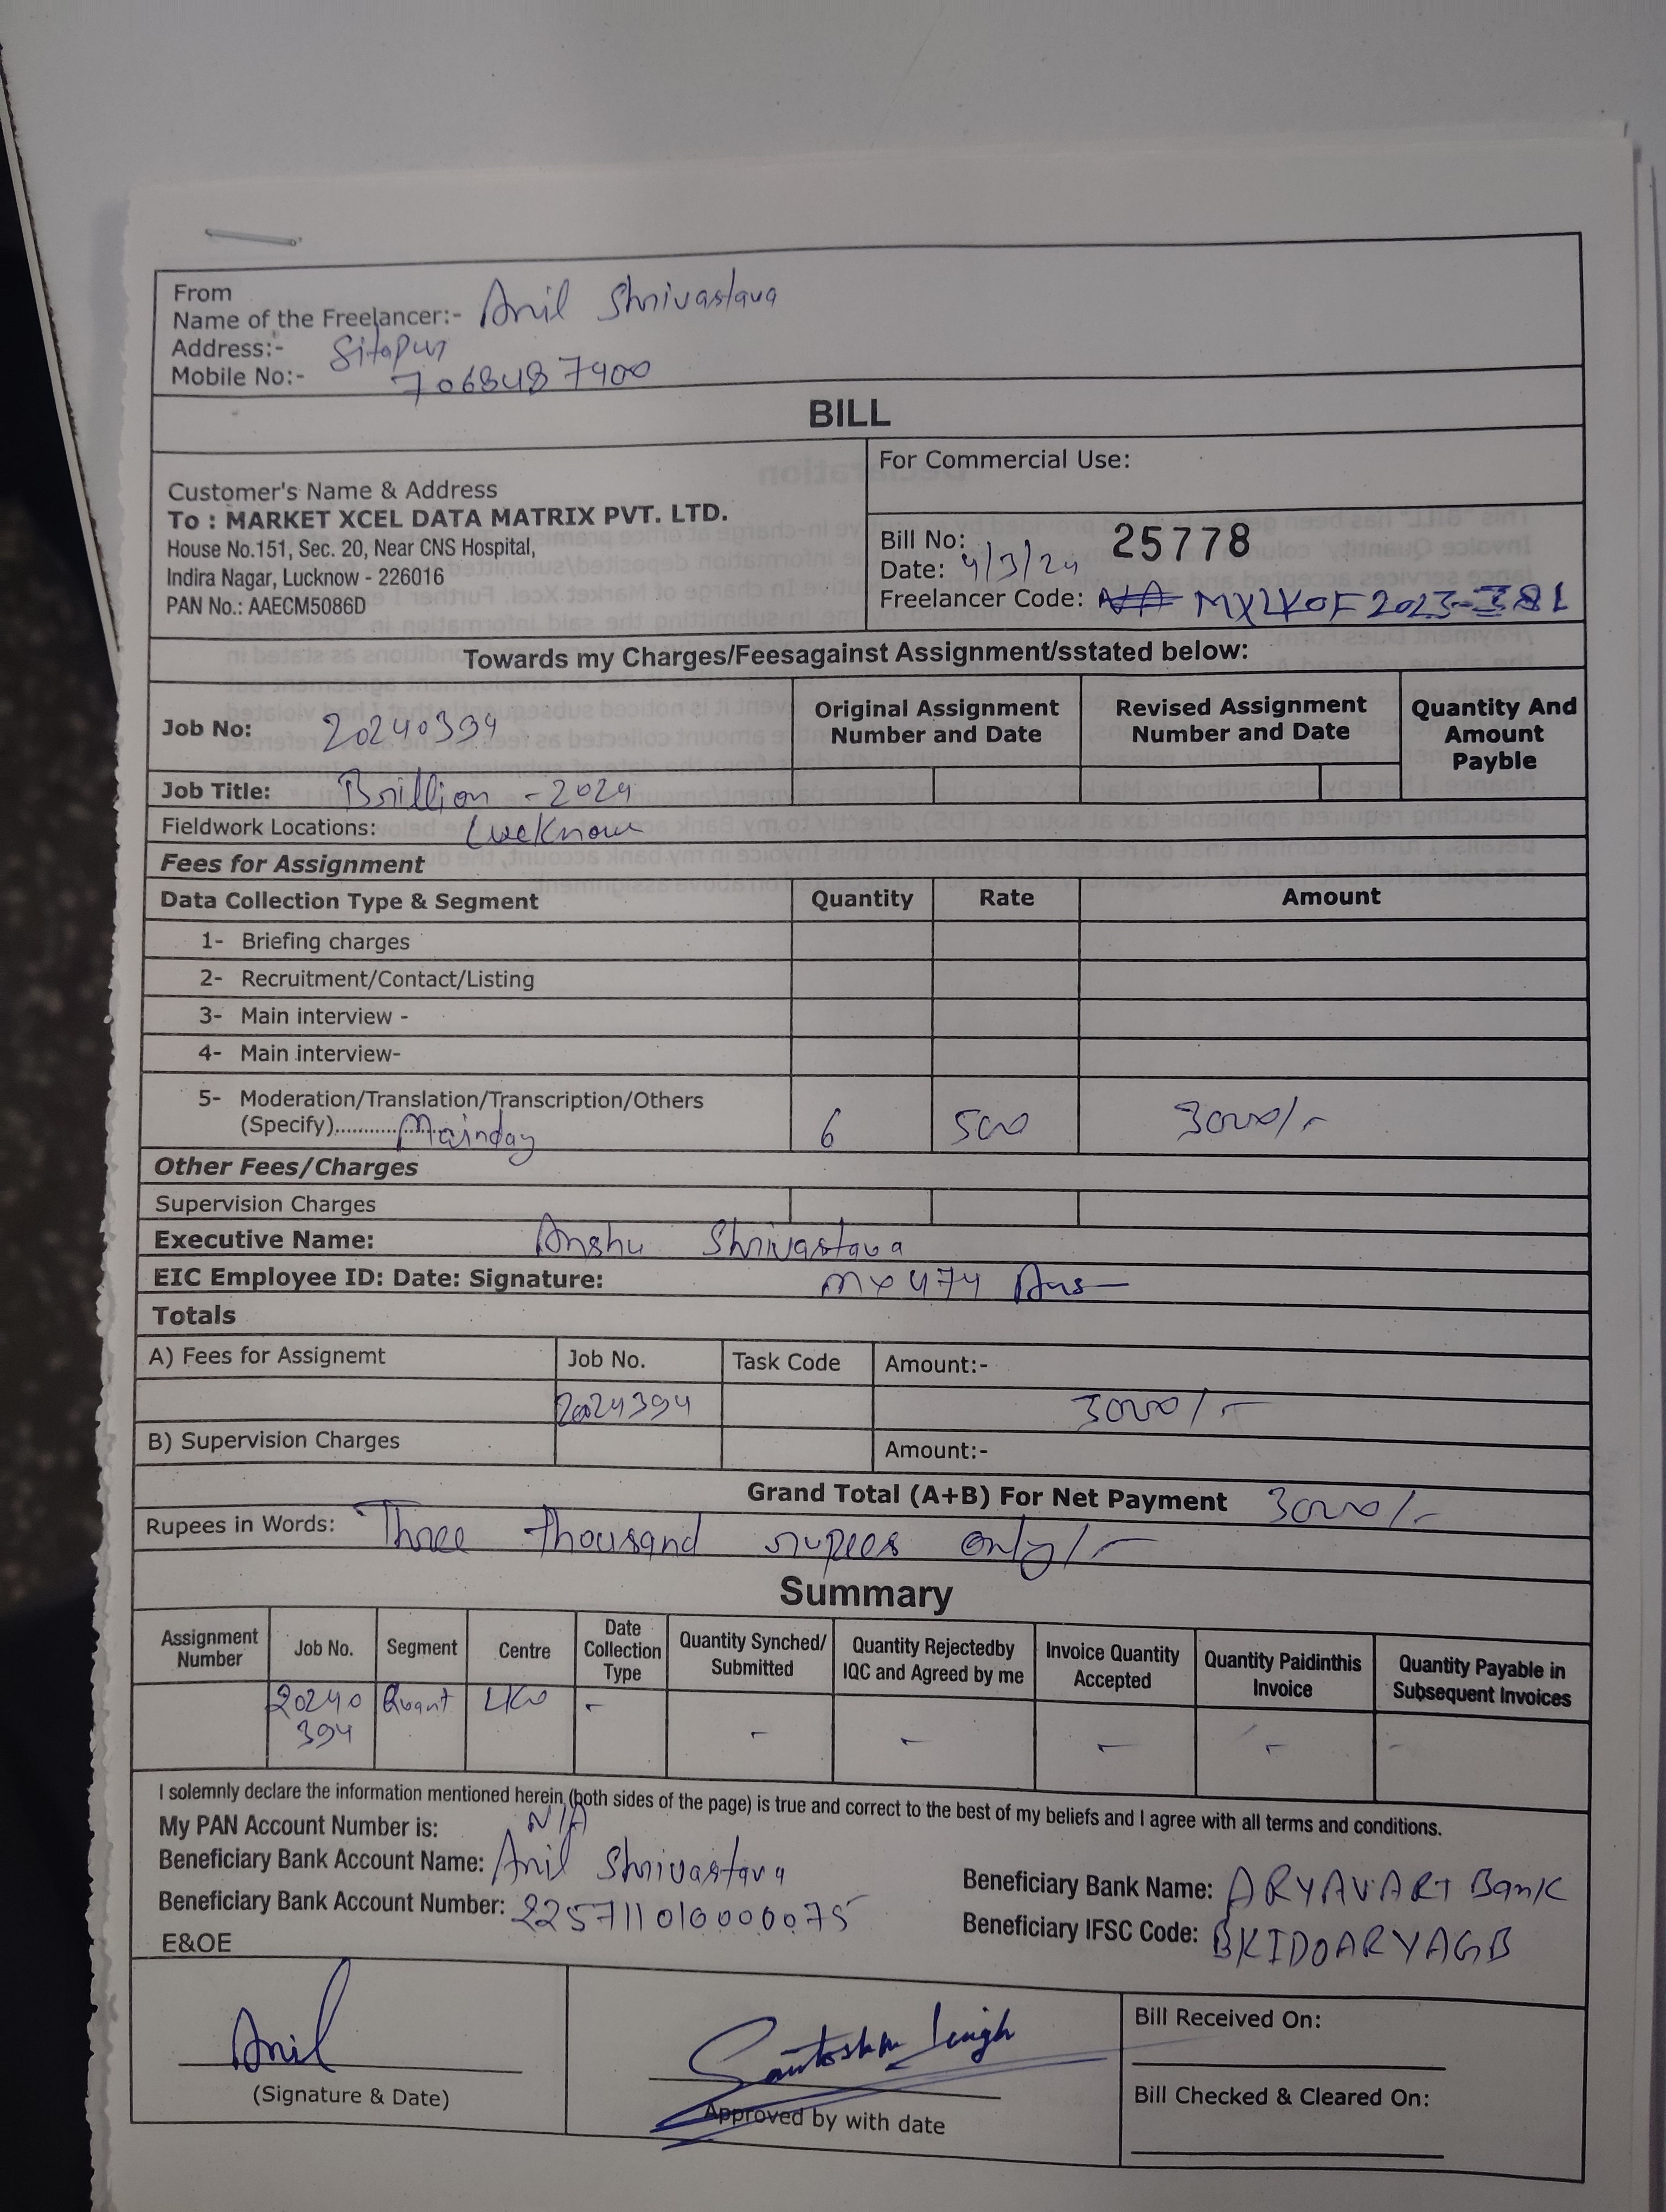 From
Name of the Freelancer:- Anil Shrivastava
Address:- Sitapur
Mobile No:- 7068487900
BILL
Customer's Name & Address
To : MARKET XCEL DATA MATRIX PVT. LTD.
House No.151, Sec. 20, Near CNS Hospital,
Indira Nagar, Lucknow - 226016
PAN No.: AAECM5086D
For Commercial Use:
Bill No: 25778
Date: 4/3/24
Freelancer Code: MXLKOF2023-381
Towards my Charges/Feesagainst Assignment/sstated below:
Job No: 20240394
Original Assignment Number and Date
Revised Assignment Number and Date
Quantity And Amount Payble
Job Title: Brillion - 2024
Fieldwork Locations: Lucknow
Fees for Assignment
Data Collection Type & Segment Quantity Rate Amount
1- Briefing charges
2- Recruitment/Contact/Listing
3- Main interview -
4- Main interview-
5- Moderation/Translation/Transcription/Others
(Specify)............ Mainday 6 500 3000/-
Other Fees/Charges
Supervision Charges
Executive Name: Anshu Shrivastava
EIC Employee ID: Date: Signature: mx474
Totals
A) Fees for Assignemt Job No. Task Code Amount:-
2024394 3000/-
B) Supervision Charges Amount:-
Grand Total (A+B) For Net Payment 3000/-
Rupees in Words: Three thousand rupees only/-
Summary
Assignment Number
Job No.
Segment
Centre
Date Collection Type
Quantity Synched/ Submitted
Quantity Rejectedby IQC and Agreed by me
Invoice Quantity Accepted
Quantity Paidinthis Invoice
Quantity Payable in Subsequent Invoices
20240 394 Quant LKO - - - - - -
I solemnly declare the information mentioned herein (both sides of the page) is true and correct to the best of my beliefs and I agree with all terms and conditions.
My PAN Account Number is: N/A
Beneficiary Bank Account Name: Anil Shrivastava
Beneficiary Bank Name: ARYAVART Bank
Beneficiary Bank Account Number: 225711010000075
Beneficiary IFSC Code: BKID0ARYAGB
E&OE
Anil
(Signature & Date)
Santosh Singh
Approved by with date
Bill Received On:
Bill Checked & Cleared On: